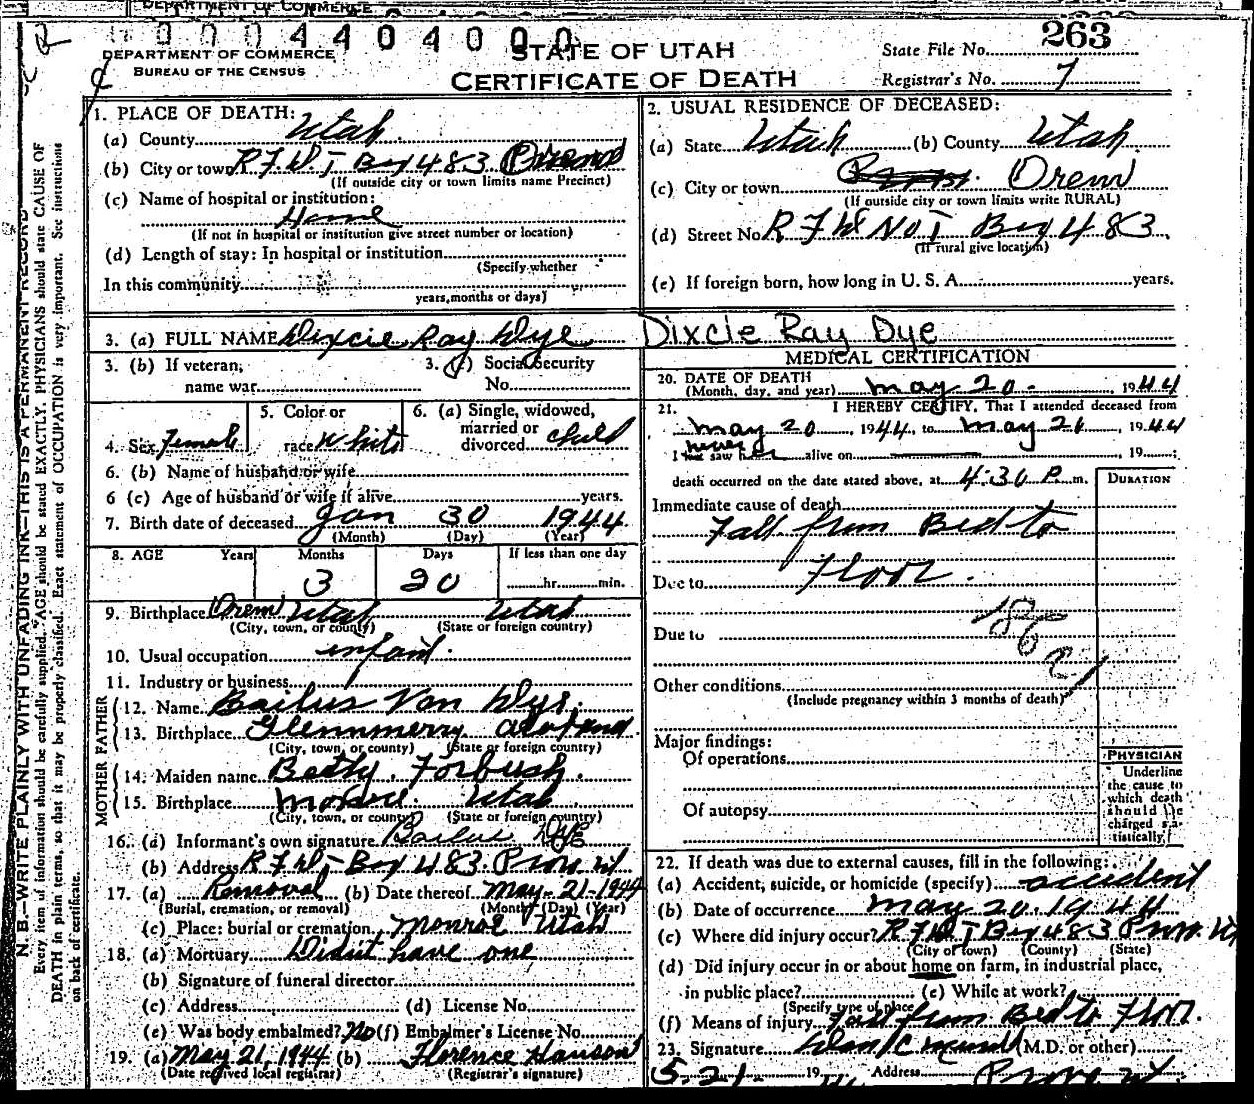 DEPARTMENT OF COMMERCE
0 0 0 4 4 0 4 0 0 0
DEPARTMENT OF COMMERCE
BUREAU OF THE CENSUS
STATE OF UTAH
CERTIFICATE OF DEATH
State File No. 263
Registrar's No. 7
N. B.—WRITE PLAINLY WITH UNFADING INK—THIS IS A PERMANENT RECORD
Every item of information should be carefully supplied. AGE should be stated EXACTLY. PHYSICIANS should state CAUSE OF
DEATH in plain terms, so that it may be properly classified. Exact statement of OCCUPATION is very important. See instructions
on back of certificate.
1. PLACE OF DEATH:
(a) County Utah
(b) City or town R.F.D. 1 Box 483 Orem
(If outside city or town limits name Precinct)
(c) Name of hospital or institution:
Home
(If not in hospital or institution give street number or location)
(d) Length of stay: In hospital or institution
(Specify whether
In this community
years, months or days)
2. USUAL RESIDENCE OF DECEASED:
(a) State Utah (b) County Utah
(c) City or town Orem
(If outside city or town limits write RURAL)
(d) Street No. R F D No 1 Box 483
(If rural give location)
(e) If foreign born, how long in U. S. A. years.
3. (a) FULL NAME Dixcie Ray Dye Dixcie Ray Dye
3. (b) If veteran, name war
3. (c) Social Security No.
4. Sex Female
5. Color or race White
6. (a) Single, widowed, married or divorced child
6. (b) Name of husband or wife
6 (c) Age of husband or wife if alive years.
7. Birth date of deceased Jan 30 1944
(Month) (Day) (Year)
8. AGE Years Months Days If less than one day
3 20 hr. min.
9. Birthplace Orem Utah Utah
(City, town, or county) (State or foreign country)
10. Usual occupation infant.
11. Industry or business
FATHER
12. Name Bailus Von Dye.
13. Birthplace Glennmerry
(City, town, or county) (State or foreign country)
MOTHER
14. Maiden name Betty Forbush.
15. Birthplace Monroe. Utah
(City, town, or county) (State or foreign country)
16. (a) Informant's own signature Bailus Dye
(b) Address R.F.D. 1 Box 483. Provo ut
17. (a) Removal (b) Date thereof May-21-1944
(Burial, cremation, or removal) (Month) (Day) (Year)
(c) Place: burial or cremation Monroe Utah
18. (a) Mortuary Didn't have one
(b) Signature of funeral director
(c) Address (d) License No.
(e) Was body embalmed? No (f) Embalmer's License No.
19. (a) May 21, 1944 (b) Florence Hanson
(Date received local registrar) (Registrar's signature)
MEDICAL CERTIFICATION
20. DATE OF DEATH
(Month, day, and year) May 20- 1944
21. I HEREBY CERTIFY, That I attended deceased from
May 20, 1944, to May 20, 1944
never
I last saw her alive on , 19 ;
death occurred on the date stated above, at 4:30 P. m.
DURATION
Immediate cause of death
Fall from Bed to
Due to Floor.
Due to
186
Other conditions
(Include pregnancy within 3 months of death)
Major findings:
Of operations
Of autopsy
PHYSICIAN
Underline
the cause to
which death
should be
charged sta-
tistically.
22. If death was due to external causes, fill in the following:
(a) Accident, suicide, or homicide (specify) accident
(b) Date of occurrence May 20, 1944
(c) Where did injury occur? R.F.D. 1 Box 483 Provo, Ut
(City or town) (County) (State)
(d) Did injury occur in or about home on farm, in industrial place,
in public place? (e) While at work?
(Specify type of place)
(f) Means of injury Fall from Bed to Floor.
23. Signature (M.D. or other)
5-21- 19 Address Provo ut.